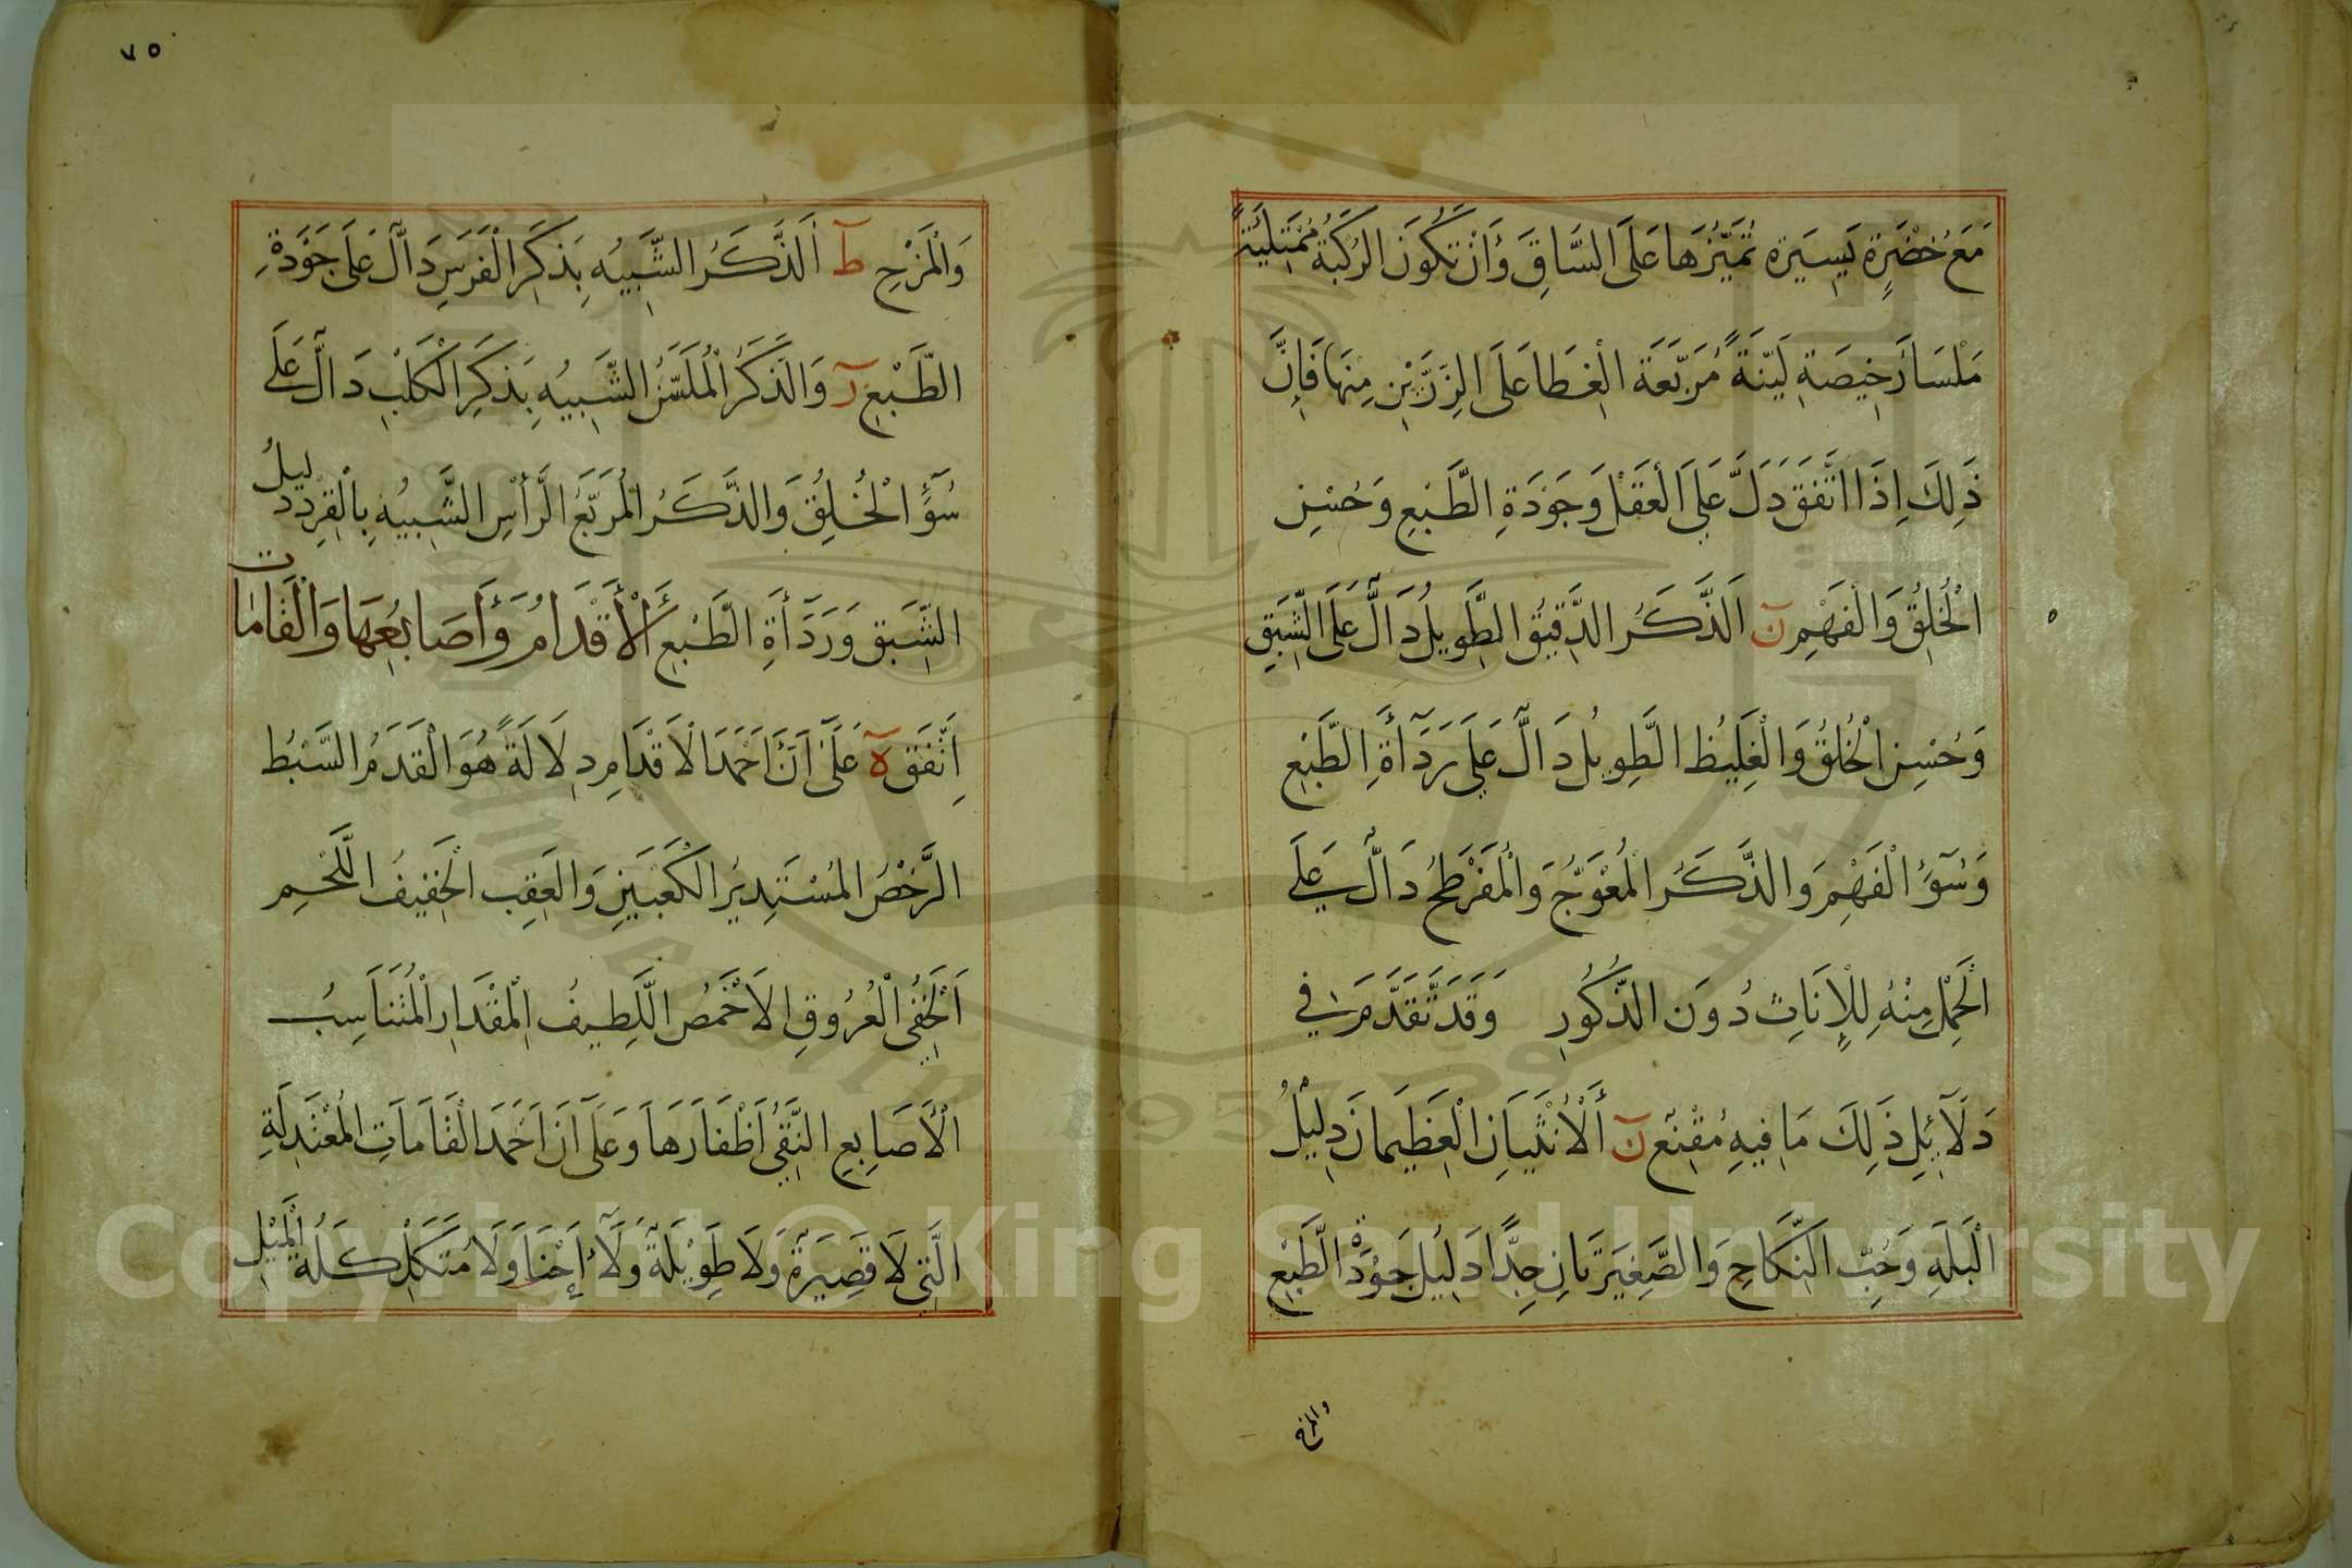 مَعَ خُضْرَةٍ يَسِيَرة تُمَيِّزُهَا عَلَى السَّاقِ وَأَنْ تَكُونَ الرُكبَةُ مُمْتَلِئَةً
مَلْسَا رَخِيصَةِ لَيّنَةً مُرَبَّعَة الْغِطَا عَلَى الزِرَّيْنِ مِنهَا فَإنَّ
ذَلِكَ اِذَا اتَّفَقَ دَلَّ عَلَى الْعَقْلِ وَجَوْدَةِ الطَّبْعِ وَحُسْنِ
الْخُلِقُ وَالْفَهْمِ نَ الَذَّكَرُ الدَّقِيقُ الطَّوِيلُ دَالٌّ عَلَى الشَّبَقِ
وَحُسْنِ الْخُلُقُ وَالْغَلِيُظ الطَّوِيلُ دَالٌّ عَلَى رَدَآأَةِ الطَّبْعِ
وَسُوٓءُ الْفَهْمِ وَالذَّكَرُ الْمُعْوَجُّ وَالْمُفَرْطَحُ دَالٌّ عَلَى
الْحَمْلِ مِنْهُ لِلْإِنَاثِ دُونَ الذُّكُورِ وَقَدْ تَقَدَّمَ فِي
دَلَآئِلِ ذَلِكَ مَا فِيهِ مُقْنِعٌ نَ اَلْأُنْثَيَانِ الْعَظِيمَانِ دَلِيْلُ
الْبَلَهِ وَحُبِّ النِّكَاحِ وَالصَّغِيَرتَانِ جِدًّا دَلِيُل جَوْدَة الطَّبْعِ
والمزح
٧٥
وَالْمَزْحِ طَ اَلذَّكَرُ الشَّبِيُه بِذَكَرِ الْفَرَسِ دَالٌّ عَلَى جَوْدَةِ
الطَّبْعِ رَ وَالذَّكَرُ الْمُلَسَّنُ الشَّبِيُه بِذَكَرِ الْكَلْبِ دَالٌّ عَلَى
سُوٓءُ الْخُلِقُ وَالذَّكَرُ الْمُرَبَّعُ الرَّأْسِ الشَّبِيُه بِالْقِرْدِ دَلِيلُ
الشَّبَقِ وَرَدَآأَةِ الطَّبْعِ اَلْأَقْدَامُ وَأَصَابِعُهَا وَالْقَامَات
اِتَّفَقَ هَ عَلَى اَنَّ اَحْمَدَ الْاَقْدَامِ دِلَالَةً هُوَ الْقَدَمُ السَّبْطُ
الرَّخْصُ الْمُسْتَدِيرُ الْكَعْبَينِ وَالْعَقِب الْخَفِيفُ اللَّحْمِ
اَلْخَفِىُّ الْعُرُوقِ الاَخْمَصُ اللَّطِيفُ الْمِقْدَارِ الْمُتَنَاسِبُ
الْأَصَابِعِ النَّقِيُّ اَظْفَارَهَا وَعَلَى اَنَّ اَحْمَدَ الْقَامَاتِ الْمُعْتَدِلَةِ
الَّتِى لَا قَصِيَرةً وَلَا طَوِيْلَةً وَلَا اِحْنَا وَلَا مُتَكَلْكِلَةُ الْمَيْلِ